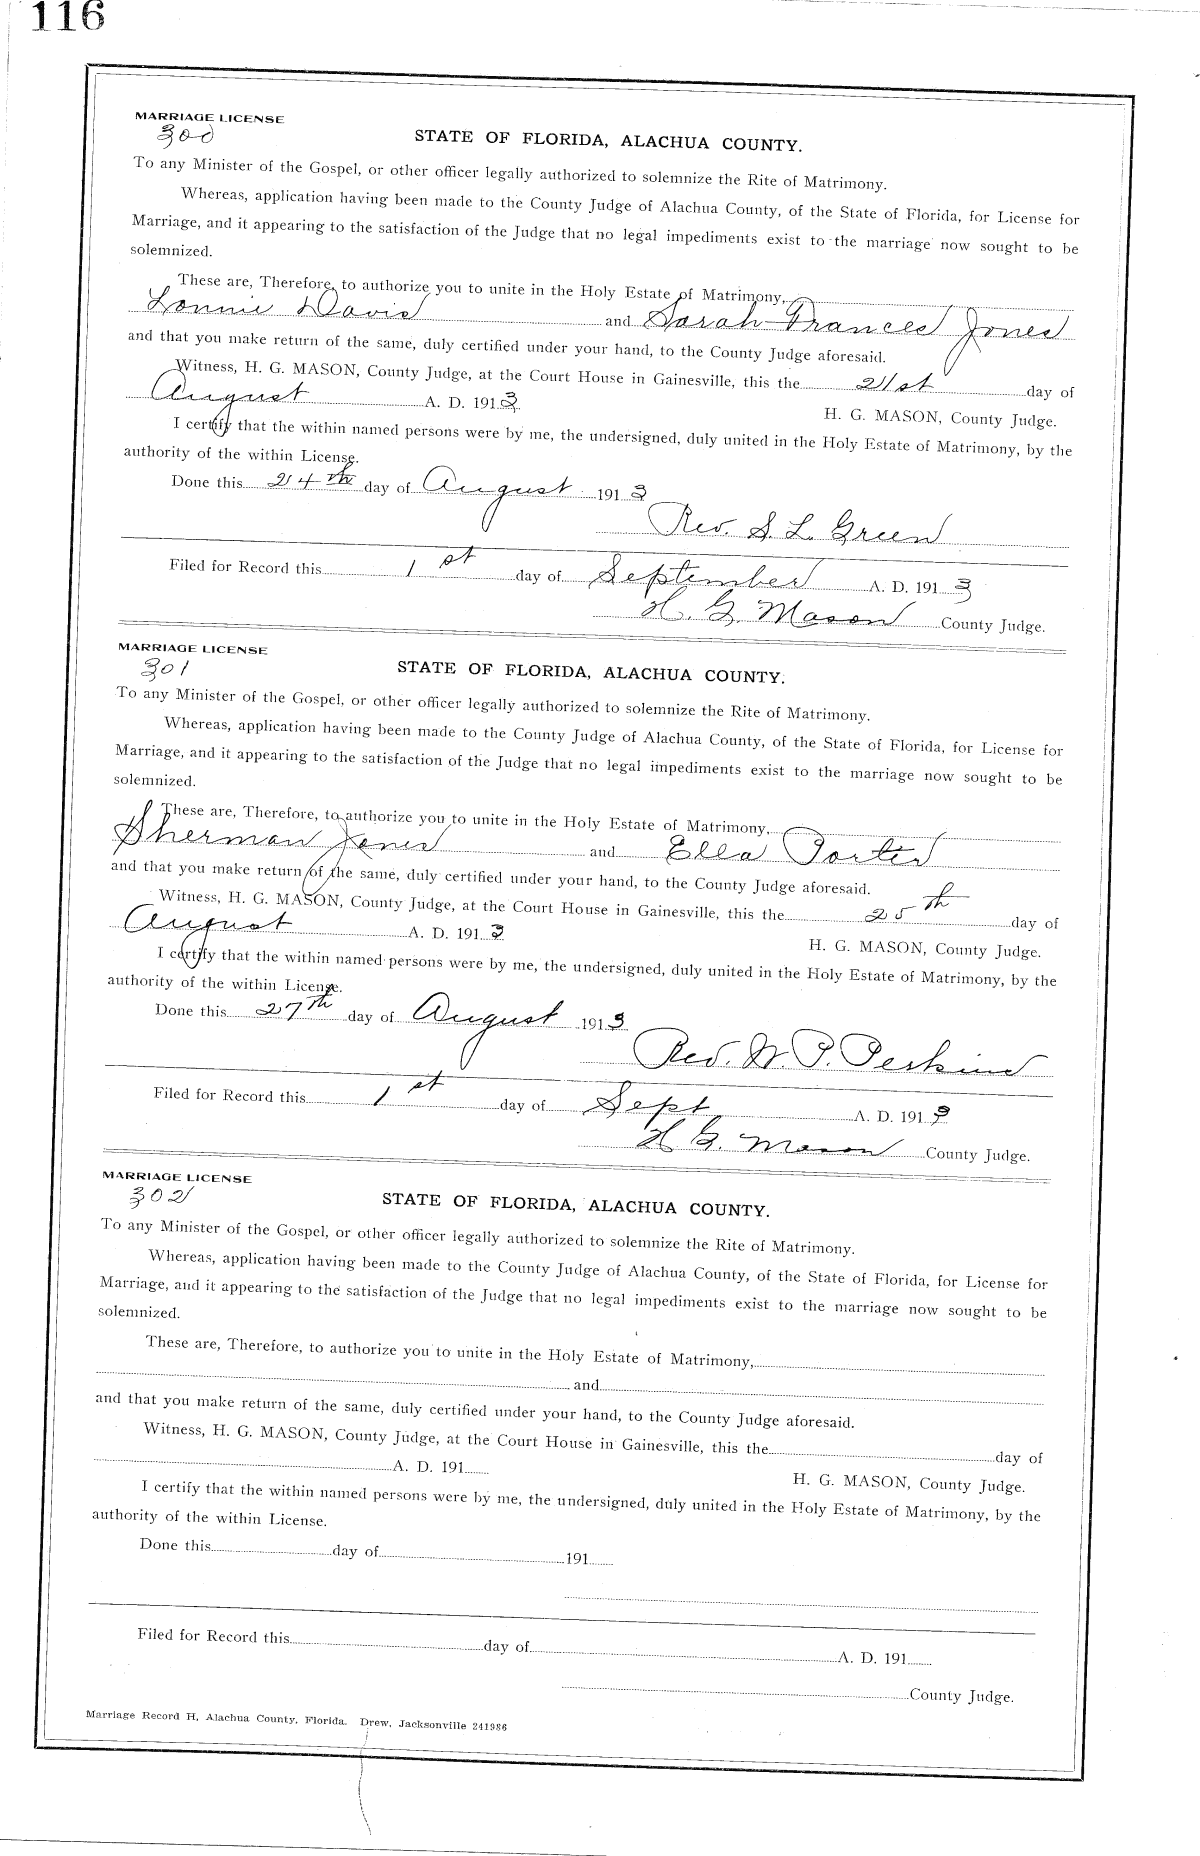 116
MARRIAGE LICENSE
300
STATE OF FLORIDA, ALACHUA COUNTY.
To any Minister of the Gospel, or other officer legally authorized to solemnize the Rite of Matrimony.
Whereas, application having been made to the County Judge of Alachua County, of the State of Florida, for License for
Marriage, and it appearing to the satisfaction of the Judge that no legal impediments exist to the marriage now sought to be
solemnized.
These are, Therefore, to authorize you to unite in the Holy Estate of Matrimony,
Lonnie Davis and Sarah Frances Jones
and that you make return of the same, duly certified under your hand, to the County Judge aforesaid.
Witness, H. G. MASON, County Judge, at the Court House in Gainesville, this the 21st day of
August A. D. 1913
H. G. MASON, County Judge.
I certify that the within named persons were by me, the undersigned, duly united in the Holy Estate of Matrimony, by the
authority of the within License.
Done this 24th day of August 1913
Rev. S. L. Green
Filed for Record this 1st day of September A. D. 1913
H. G. Mason County Judge.
MARRIAGE LICENSE
301
STATE OF FLORIDA, ALACHUA COUNTY.
To any Minister of the Gospel, or other officer legally authorized to solemnize the Rite of Matrimony.
Whereas, application having been made to the County Judge of Alachua County, of the State of Florida, for License for
Marriage, and it appearing to the satisfaction of the Judge that no legal impediments exist to the marriage now sought to be
solemnized.
These are, Therefore, to authorize you to unite in the Holy Estate of Matrimony,
Sherman Jones and Ella Porter
and that you make return of the same, duly certified under your hand, to the County Judge aforesaid.
Witness, H. G. MASON, County Judge, at the Court House in Gainesville, this the 25th day of
August A. D. 1913
H. G. MASON, County Judge.
I certify that the within named persons were by me, the undersigned, duly united in the Holy Estate of Matrimony, by the
authority of the within License.
Done this 27th day of August 1913
Rev. W. P. Perkins
Filed for Record this 1st day of Sept A. D. 1913
H. G. Mason County Judge.
MARRIAGE LICENSE
302
STATE OF FLORIDA, ALACHUA COUNTY.
To any Minister of the Gospel, or other officer legally authorized to solemnize the Rite of Matrimony.
Whereas, application having been made to the County Judge of Alachua County, of the State of Florida, for License for
Marriage, and it appearing to the satisfaction of the Judge that no legal impediments exist to the marriage now sought to be
solemnized.
These are, Therefore, to authorize you to unite in the Holy Estate of Matrimony,
and
and that you make return of the same, duly certified under your hand, to the County Judge aforesaid.
Witness, H. G. MASON, County Judge, at the Court House in Gainesville, this the day of
A. D. 191
H. G. MASON, County Judge.
I certify that the within named persons were by me, the undersigned, duly united in the Holy Estate of Matrimony, by the
authority of the within License.
Done this day of 191
Filed for Record this day of A. D. 191
County Judge.
Marriage Record H, Alachua County, Florida. Drew, Jacksonville 241986